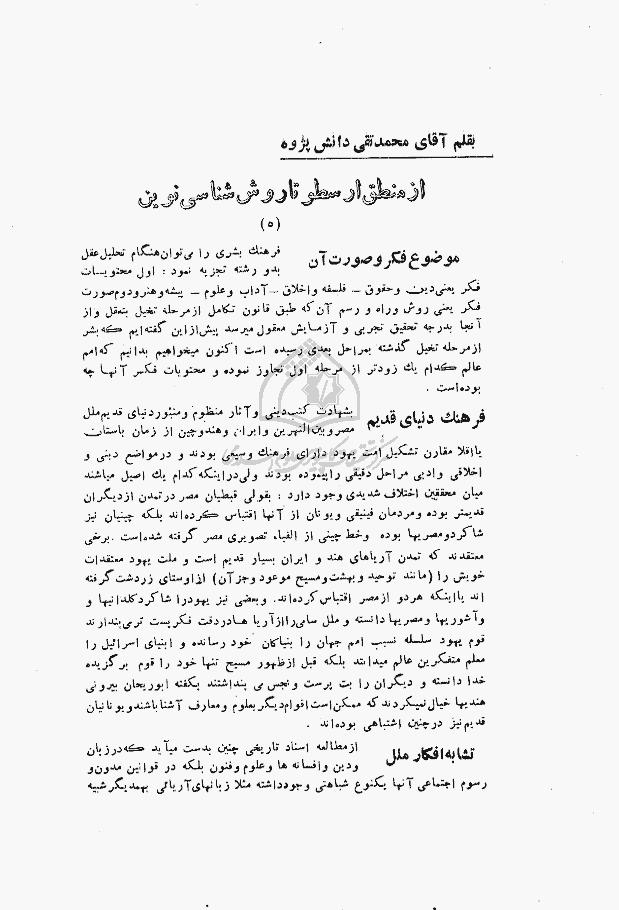 بقلم آقای محمدتقی دانش پژوه
از منطق ارسطو تا روش شناسی نوین
(۵)
موضوع فکر و صورت آن
فرهنك بشری را می‌توان هنگام تحلیل عقل
بدو رشته تجزیه نمود : اول محتویات
فکر یعنی دین و حقوق – فلسفه و اخلاق – آداب و علوم – پیشه و هنر و دوم صورت
فکر یعنی روش وراه و رسم آن که طبق قانون تکامل از مرحله تخیل بتعقل و از
آنجا بدرجه تحقیق تجربی و آزمایش معقول میرسد پیش از این گفته‌ایم که بشر
از مرحله تخیل گذشته بمراحل بعدی رسیده است اکنون میخواهیم بدانیم که امم
عالم کدام یك زودتر از مرحله اول تجاوز نموده و محتویات فکر آنها چه
بوده است .
فرهنك دنیای قدیم
بشهادت کتب دینی و آثار منظوم و منثور دنیای قدیم ملل
مصر و بین‌النهرین و ایران و هند و چین از زمان باستان
یا اقلا مقارن تشکیل امت یهود دارای فرهنك وسیعی بودند و در مواضع دینی و
اخلاقی و ادبی مراحل دقیقی را پیموده بودند ولی در اینکه کدام یك اصیل میباشند
میان محققین اختلاف شدیدی وجود دارد : بقولی قبطیان مصر در تمدن از دیگران
قدیمتر بوده و مردمان فینیقی و یونان از آنها اقتباس کرده‌اند بلکه چینیان نیز
شاگرد مصریها بوده و خط چینی از الفباء تصویری مصر گرفته شده است . برخی
معتقدند که تمدن آریاهای هند و ایران بسیار قدیم است و ملت یهود معتقدات
خویش را (مانند توحید و بهشت و مسیح موعود و جز آن) از اوستای زردشت گرفته
اند یا اینکه هر دو از مصر اقتباس کرده‌اند. و بعضی نیز یهود را شاگرد کلدانیها و
و آشوریها و مصریها دانسته و ملل سامی را از آریا ها در دقت فکر پست تر می‌پندارند
قوم یهود سلسله نسب امم جهان را بنیاکان خود رسانده و انبیای اسرائیل را
معلم متفکرین عالم میدانند بلکه قبل از ظهور مسیح تنها خود را قوم برگزیده
خدا دانسته و دیگران را بت پرست و نجس می پنداشتند بگفته ابوریحان بیرونی
هندیها خیال نمیکردند که ممکن است اقوام دیگر بعلوم و معارف آشنا باشند و یونانیان
قدیم نیز در چنین اشتباهی بوده‌اند .
تشابه افکار ملل
از مطالعه اسناد تاریخی چنین بدست میآید که در زبان
و دین و افسانه ها و علوم و فنون بلکه در قوانین مدون و
رسوم اجتماعی آنها یکنوع شباهتی وجود داشته مثلا زبانهای آریائی بهمدیگر شبیه